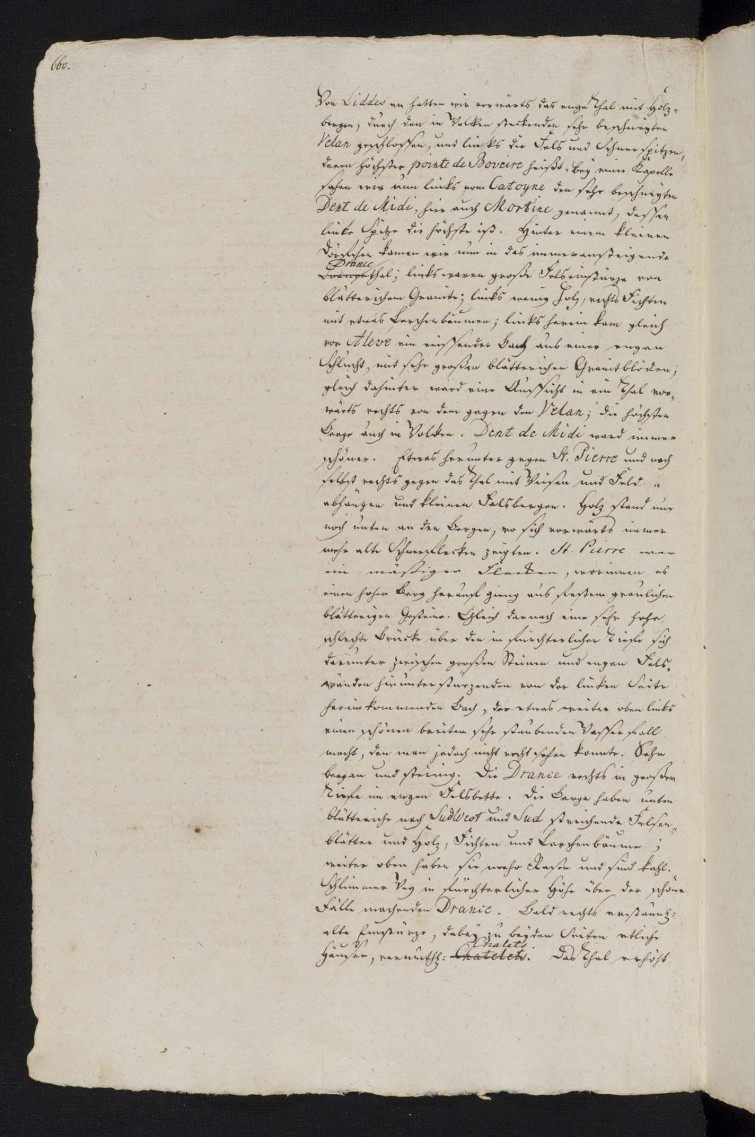 660.
Von Liddes an hatten wir vorwärts das enge Thal mit Holz-
bergen, durch den in Wolken steckenden sehr beschneyten
Velan geschlossen, und links die Fels und Schneespitzen,
deren höchster pointe de Boveire heißt. Bey einer Kapelle
sahen wir nun links vom Catoyne den sehr beschneyten
Dent de Midi, hier auch Morkine genannt, dessen
linke Spitze die höchste ist. Hinter einem kleinen
Dörfchen kamen wir nun in das immeransteigende
Drance
thal; links waren große Felseinstürze von
blätterichem Granite; links wenig Holz, rechts Fichten
mit etwas Lerchenbäumen; links herein kam gleich
vor Aleve ein reissender Bach aus einer engen
Schlucht, mit sehr großen blätterichen Granitblöcken;
gleich dahinter ward eine Aussicht in ein Thal vor-
wärts rechts von dem gegen den Velan; die höchsten
Berge auch in Wolken. Dent de Midi ward immer
schöner. Etwas herunter gegen St. Pierre und nach
selbst rechts gegen das Thal mit Wiesen und Feld-
abhängen und kleinen Felsbergen. Holz stand nur
noch unten an den Bergen, wo sich vorwärts immer
mehr alte Schneeflecken zeigten. St. Pierre war
ein mäßiger Flecken, worinnen es
einen hohen Berg herauf ging aus festem graulichen
blätterigen Gesteine. Gleich darnach eine sehr hohe,
schlechte Brücke über den in fürchterlicher Tiefe sich
darunter zwischen großen Steinen und engen Fels-
wänden hinunterstürzenden von der linken Seite
hereinkommenden Bach, der etwas weiter oben links
einen schönen breiten sehr stäubenden Wasserfall
macht, den man jedoch nicht recht sehen konnte. Sehr
bergan und steinig. Die Drance rechts in großer
Tiefe im engen Felsbette. Die Berge haben unten
blätteriche nach Südwest und Süd streichende Felsen-
blätter und Holz, Fichten und Lerchenbäume;
weiter oben haben sie mehr Rasen und sind kahl.
Schlimmer Weg in fürchterlicher Höhe über der schöne
Fälle machenden Drance. Bald rechts
alte Einstürze, dabey zu beyden Seiten etliche
Chalets
Häuser, vermuthl: Chatelets. Das Thal erhöht